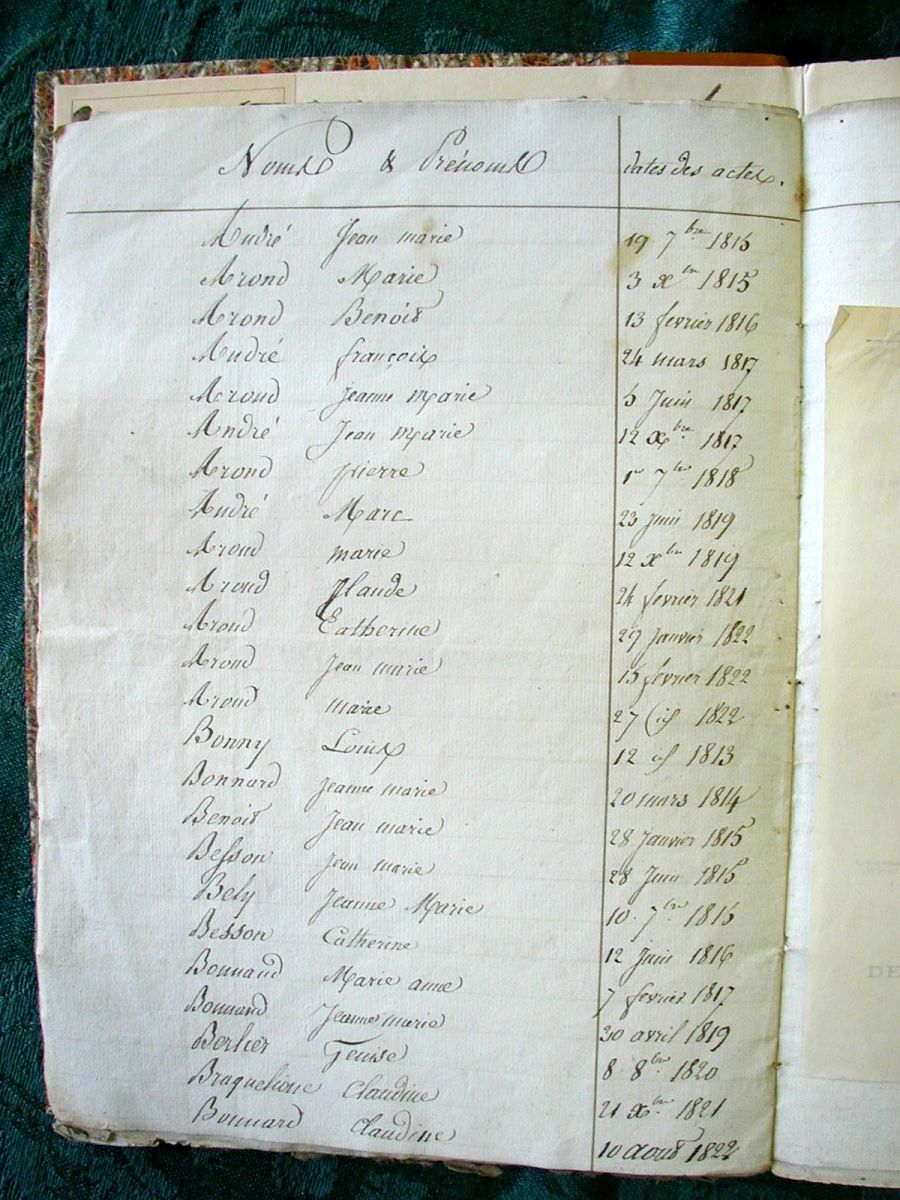 Noms & Prénoms dates des actes.
André Jean marie 19 7bre 1815
Arond Marie 3 xbre 1815
Arond Benoit 13 fevrier 1816
André françois 24 mars 1817
Aroud jeanne Marie 5 Juin 1817
André Jean Marie 12 Xbre 1817
Arond pierre 1er 7bre 1818
André Marc 23 juin 1819
Aroud marie 12 xbre 1819
Aroud Claude 24 fevrier 1821
Arond Catherine 29 Janvier 1822
Arond Jean marie 15 fevrier 1822
Aroud marie 27 id 1822
Bonny Louis 12 id 1813
Bonnard Jeanne marie 20 mars 1814
Benoit Jean marie 28 Janvier 1815
Besson Jean marie 28 Juin 1815
Bely Jeanne Marie 10 7bre 1815
Besson Catherine 12 Juin 1816
Bonnand Marie anne 7 fevrier 1817
Bonnand Jeanne marie 30 avril 1819
Berlier 8 8bre 1820
Claudine 21 xbre 1821
Bonnard Claudine 10 aout 1822
DE